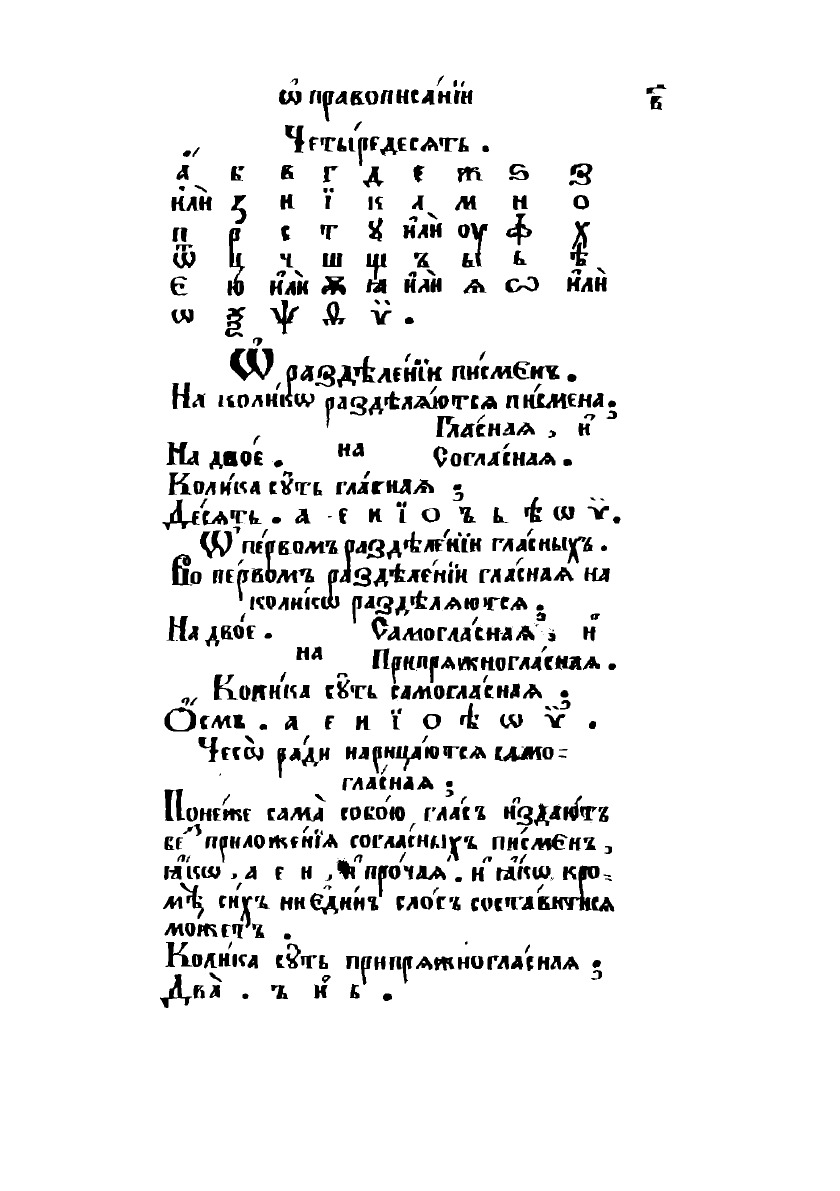 Ѡ҆ правописа́нїи в҃
Четы́редесѧть .
а҆́ б в г д е ж ѕ з
и҆лѝ ꙁ и ї к л м н о
п р с т ꙋ и҆лѝ оу ф х
ѿ ц ч ш щ ъ ы ь ѣ
є ю и҆лѝ ѫ ꙗ и҆лѝ ѧ ѡ и҆лѝ
ѡ ѯ ѱ ѳ ѵ̈ .
Ѽ раздѣле́нїи пи́смєнъ .
На коли́кѡ раздѣлѧ́ютсѧ пи́смена ;
Гла́снаѧ , и҆
На дво́є . на Согла́снаѧ .
Коли́ка сꙋ́ть гла́снаѧ ;
Де́сѧть . а е и ї о ъ ь ѣ ѡ ѵ̈ .
Ѽ пе́рвомъ раздѣле́нїи гла́сныхъ .
Во пе́рвомъ раздѣле́нїи гла́снаѧ на
коли́кѡ раздѣлѧ́ютсѧ ;
На дво́є . Самогла́снаѧ , и҆
на Припрѧжногла́снаѧ .
Коли́ка сꙋ́ть самогла́снаѧ ;
О҆́смь . а е и ї о ѣ ѡ ѵ̈ .
Чесѡ̀ ра́ди нарица́ютсѧ само-
гла́снаѧ ;
Поне́же сама̀ собо́ю гла́съ и҆здаю́тъ
беⷥ приложе́нїѧ согла́сныхъ пи́смєнъ ,
ꙗ҆́кѡ , а е и , и҆ про́чаѧ . и҆ ꙗ҆́кѡ кро-
мѣ̀ си́хъ ни є҆ди́нъ сло́гъ соста́витисѧ
мо́жетъ .
Коли́ка сꙋ́ть припрѧжногла́снаѧ ;
Два̀ . ъ и҆ ь .